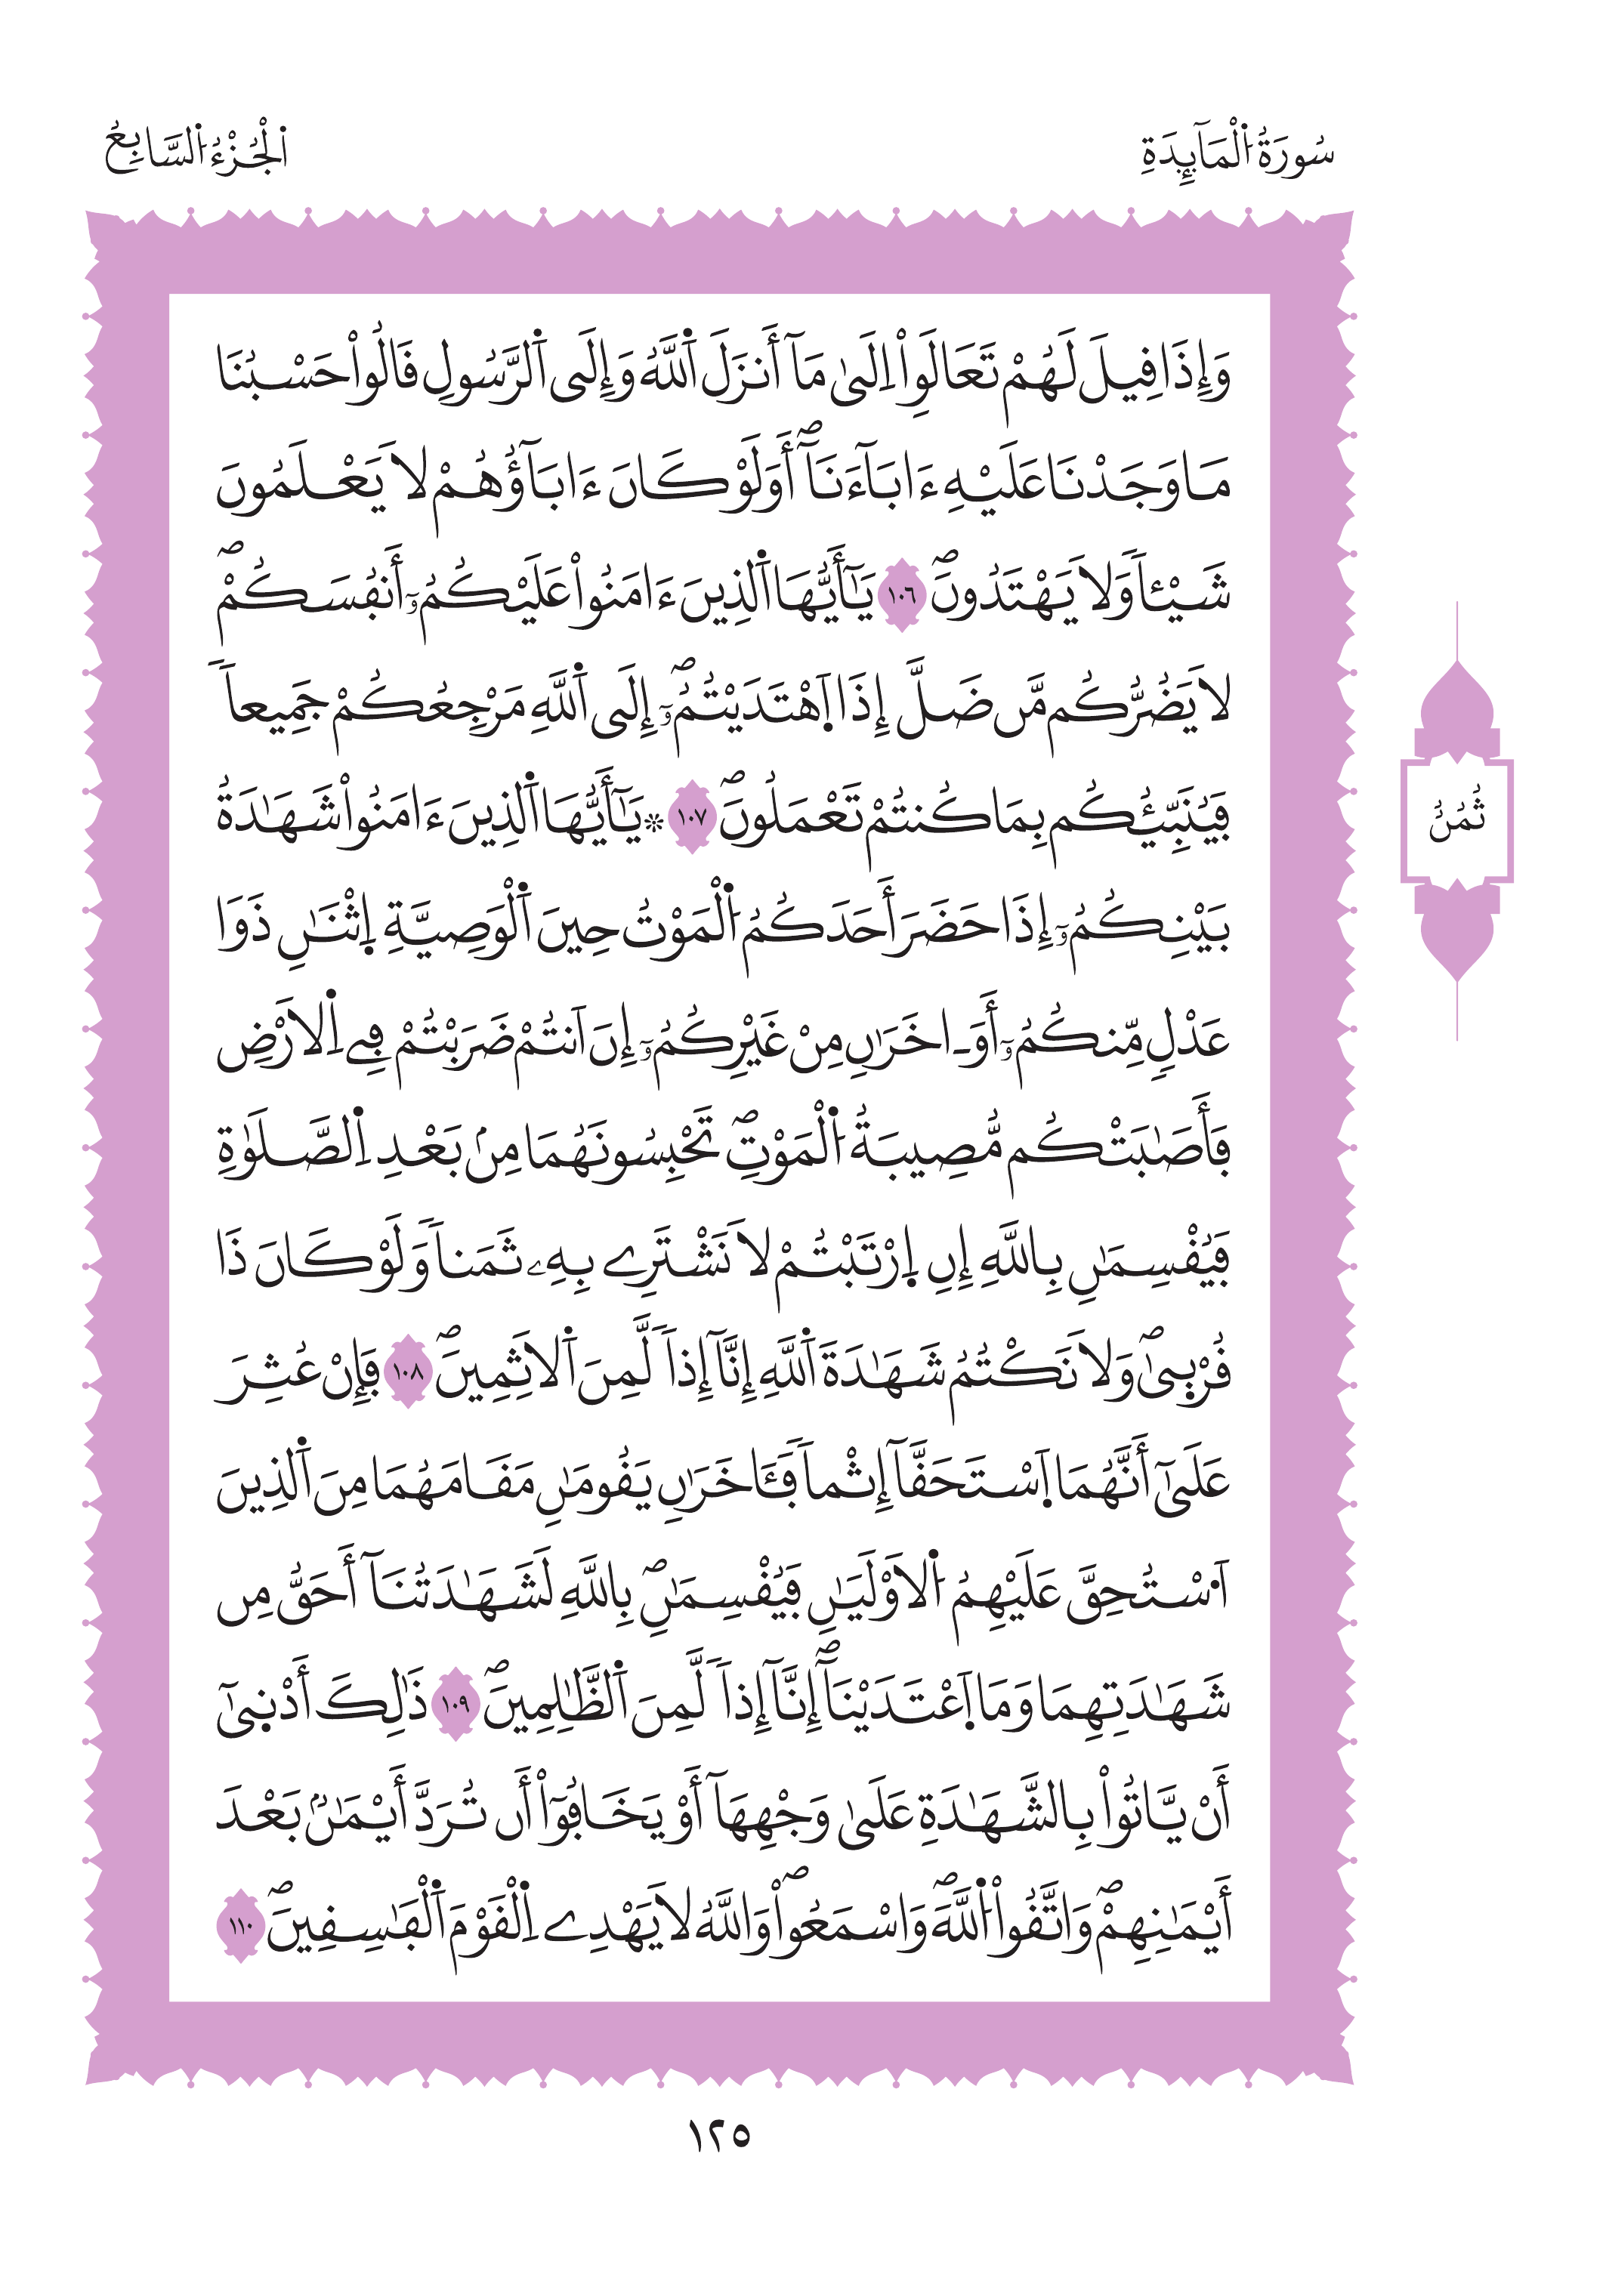 سُورَةُ اُ۬لْمَآئِدَةِ
اَ۬لْجُزْءُ اُ۬لسَّابِعُ
وَإِذَا فِيلَ لَهُمْ تَعَالَوِاْ اِلَيٰ مَآ أَنزَلَ اَ۬للَّهُ وَإِلَي اَ۬لرَّسُولِ فَالُواْ حَسْبُنَا
مَا وَجَدْنَا عَلَيْهِ ءَابَآءَنَآۖ أَوَلَوْ كَانَ ءَابَآؤُهُمْ لَا يَعْلَمُونَ
شَيْـٔاٗ وَلَا يَهْتَدُونَۖ ١٠٦ يَٰٓأَيُّهَا اَ۬لذِينَ ءَامَنُواْ عَلَيْكُمُۥٓ أَنفُسَكُمْۖ
لَا يَضُرُّكُم مَّن ضَلَّ إِذَا اَ۪هْتَدَيْتُمُۥٓۖ إِلَي اَ۬للَّهِ مَرْجِعُكُمْ جَمِيعاٗ
فَيُنَبِّئُكُم بِمَا كُنتُمْ تَعْمَلُونَۖ ١٠٧ ۞ يَٰٓأَيُّهَا اَ۬لذِينَ ءَامَنُواْ شَهَٰدَةُ
بَيْنِكُمُۥٓ إِذَا حَضَرَ أَحَدَكُمُ اُ۬لْمَوْتُ حِينَ اَ۬لْوَصِيَّةِ اِ۪ثْنَٰنِ ذَوَا
عَدْلٖ مِّنكُمُۥٓ أَوَ اٰخَرَٰنِ مِنْ غَيْرِكُمُۥٓ إِنَ اَنتُمْ ضَرَبْتُمْ فِے اِ۬لَارْضِ
فَأَصَٰبَتْكُم مُّصِيبَةُ اُ۬لْمَوْتِۖ تَحْبِسُونَهُمَا مِنۢ بَعْدِ اِ۬لصَّلَوٰةِ
فَيُفْسِمَٰنِ بِاللَّهِ إِنِ اِ۪رْتَبْتُمْ لَا نَشْتَرِے بِهِۦ ثَمَناٗ وَلَوْ كَانَ ذَا
فُرْب۪يٰۖ وَلَا نَكْتُمُ شَهَٰدَةَ اَ۬للَّهِ إِنَّآ إِذاٗ لَّمِنَ اَ۬لَاثِمِينَۖ ١٠٨ فَإِنْ عُثِرَ
عَلَيٰٓ أَنَّهُمَا اَ۪سْتَحَفَّآ إِثْماٗ فَـَٔاخَرَٰنِ يَفُومَٰنِ مَفَامَهُمَا مِنَ اَ۬لذِينَ
اَ۟سْتُحِقَّ عَلَيْهِمُ اُ۬لَاوْلَيَٰنِ فَيُفْسِمَٰنِۖ بِاللَّهِ لَشَهَٰدَتُنَآ أَحَقُّ مِن
شَهَٰدَتِهِمَا وَمَا اَ۪عْتَدَيْنَآۖ إِنَّآ إِذاٗ لَّمِنَ اَ۬لظَّٰلِمِينَۖ ١٠٩ ذَٰلِكَ أَدْن۪يٰٓ
أَنْ يَّاتُواْ بِالشَّهَٰدَةِ عَلَيٰ وَجْهِهَآ أَوْ يَخَافُوٓاْ أَن تُرَدَّ أَيْمَٰنُۢ بَعْدَ
أَيْمَٰنِهِمْۖ وَاتَّفُواْ اُ۬للَّهَۖ وَاسْمَعُواْۖ وَاللَّهُ لَا يَهْدِے اِ۬لْفَوْمَ اَ۬لْفَٰسِفِينَۖ ١١٠
ثُمُنُ
١٢٥